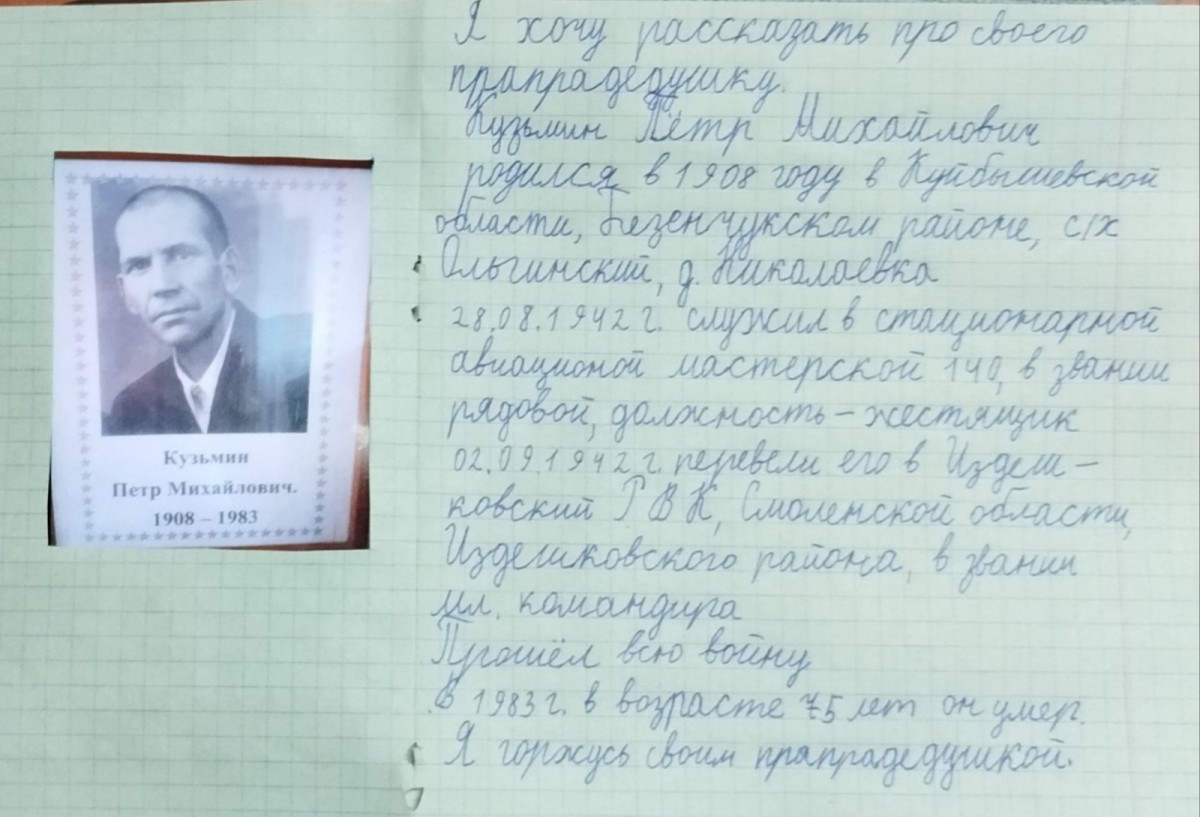 Кузьмин
Петр Михайлович.
1908 – 1983
Я хочу рассказать про своего
прапрадедушку.
Кузьмин Пётр Михайлович
родился в 1908 году в Куйбышевской
области, Безенчукском районе, с/х
Ольгинский, д. Николаевка
28.08.1942 г. служил в стационарной
авиационой мастерской 140, в звании
рядовой, должность – жестящик
02.09.1942 г. перевели его в Издеш-
ковский РВК, Смоленской области,
Издешковского района, в звании
мл. командира
Прошёл всю войну
В 1983 г. в возрасте 75 лет он умер.
Я горжусь своим прапрадедушкой.